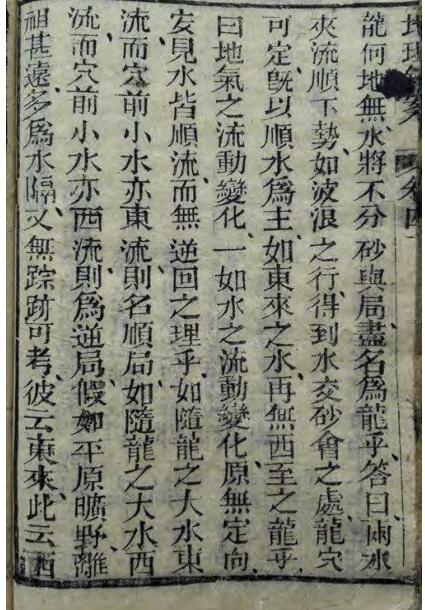 卷四
龍何地無水將不分砂與局盡名爲龍乎答曰兩水
夾流順下勢如波浪之行得到水交砂會之處龍穴
可定旣以順水爲主如東來之水再無西至之龍乎
曰地氣之流動變化一如水之流動變化原無定向
安見水皆順流而無逆回之理乎如隨龍之大水東
流而穴前小水亦東流則名順局如隨龍之大水西
流而穴前小水亦西流則爲逆局假如平原曠野離
祖甚遠多爲水隔又無踪跡可考彼云東來此云西